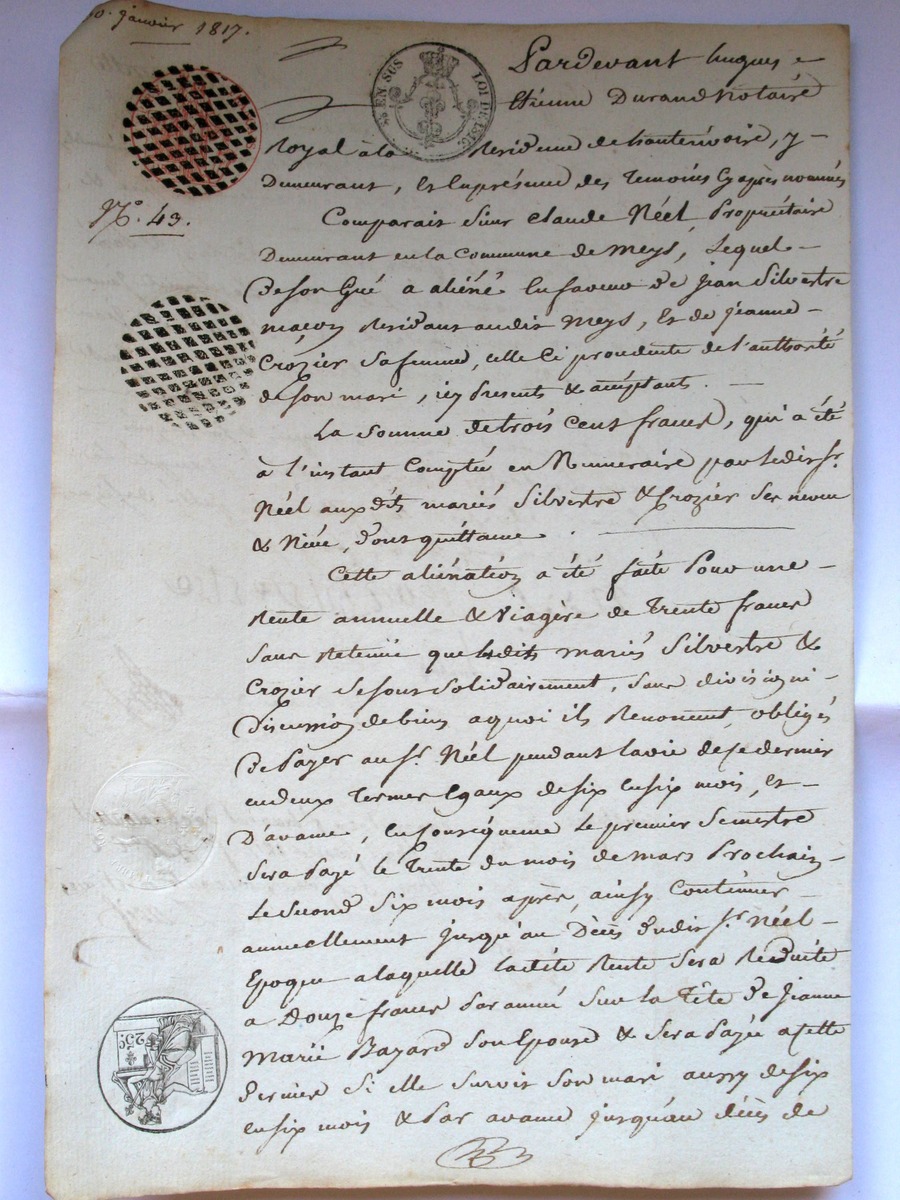 janvier 1817.
EN SUS
LOI DE 1816
Pardevant hugues
Etienne Durand Notaire
Royal à la Residence de hauterivoire, y
Demeurant, Et En présence des Temoins Cy après nommés
N.º 43.
Comparait Sieur Claude Néel Propriétaire
Demeurant en la Commune de Meys, Lequel
De son Gré a aliéné En faveur De Jean Silvestre
maçon Residant audit Meys, Et de Jeanne
Crozier sa femme, celle Ci procedante de l'authorité
de son mari, icy Présents & acceptants.
La Somme de trois Cent francs, qui a été
à l'instant Comptée en Numeraire par ledit Sr.
Néel auxdits mariés Silvestre & Crozier Ses neveu
& Niéce, Dont quittance.
Cette aliénation a été faite Pour une
Rente annuelle & Viagère de Trente francs
Sans Retenüe que lesdits mariés Silvestre &
Crozier Se sont Solidairement, Sans division ni
Discussion de biens a quoi ils Renoncent, obligés
De Payer au Sr. Néel pendant la vie de ce dernier
en deux Termes Egaux de six En six mois, Et
D'avance, En Conséquence Le premier Semestre
Sera Payé le Trente du mois de Mars Prochain
Le Second Six mois après, ainsy Continuer
annuellement Jusqu'au Décès Dudit Sr. Néel
Epoque a laquelle ladite Rente Sera Réduite
a Douze francs Par année Sur la Tête De Jeanne
Marie Bazard Son Epouse & Sera Payée a Cette
Derniere Si elle Survit Son mari aussy de six
en six mois & Par avance jusqu'au décès de
25c.